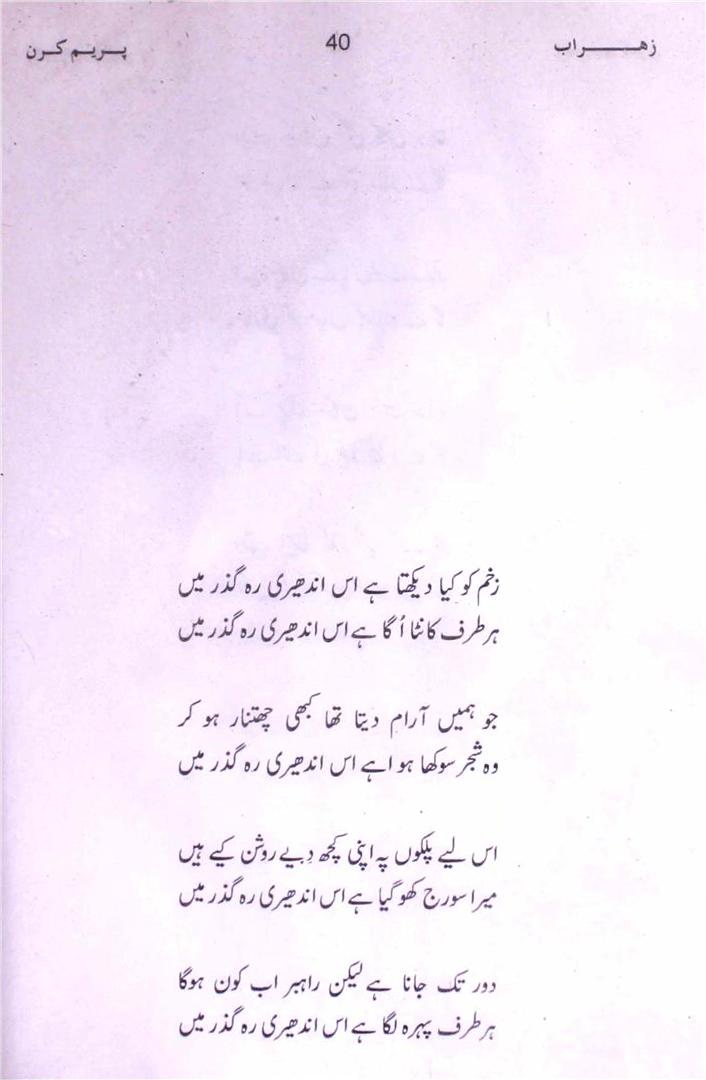 زهراب 40 پریم کرن
زخم کو کیا دیکھتا ہے اس اندھیری رہ گذر میں
ہر طرف کانٹا اُگا ہے اس اندھیری رہ گذر میں
جو ہمیں آرام دیتا تھا کبھی چھتنار ہو کر
وہ شجر سوکھا ہوا ہے اس اندھیری رہ گذر میں
اس لیے پلکوں پہ اپنی کچھ دِیے روشن کیے ہیں
میرا سورج کھو گیا ہے اس اندھیری رہ گذر میں
دور تک جانا ہے لیکن راہبر اب کون ہوگا
ہر طرف پہرہ لگا ہے اس اندھیری رہ گذر میں